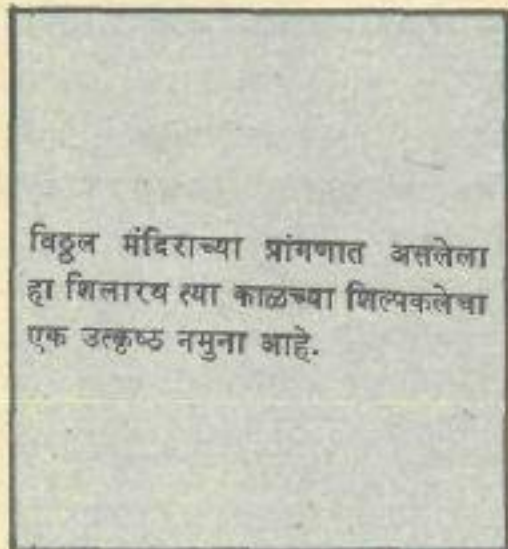 विठ्ठल मंदिराच्या प्रांगणात असलेला
हा शिलारथ त्या काळच्या शिल्पकलेचा
एक उत्कृष्ठ नमुना आहे.